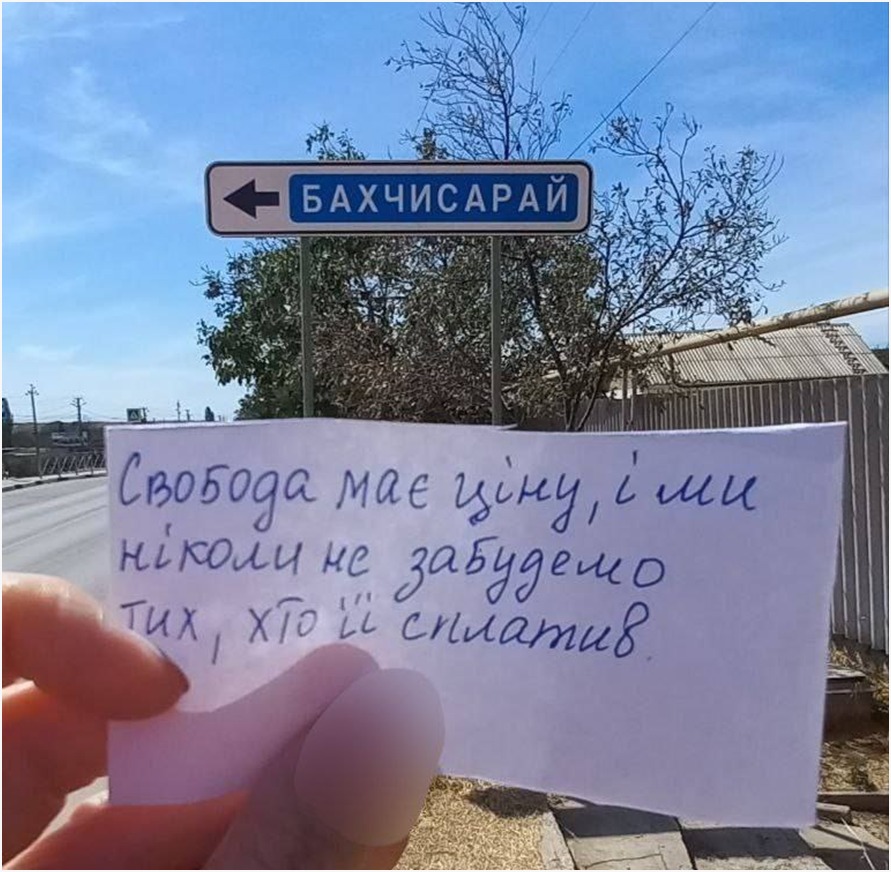 БАХЧИСАРАЙ
Свобода має ціну, і ми
ніколи не забудемо
тих, хто її сплатив.